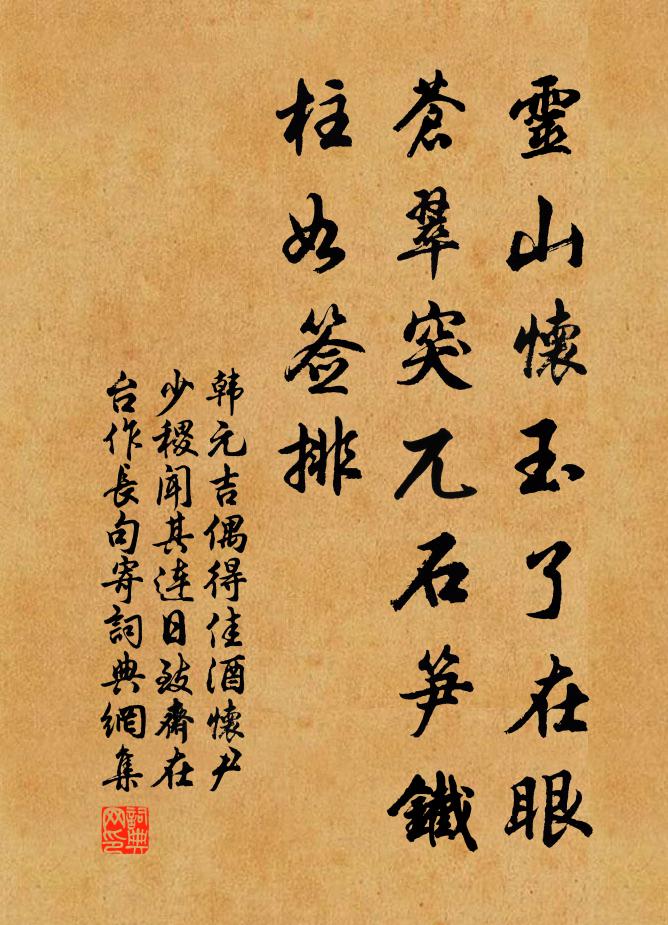 靈山懷玉了在眼
蒼翠突兀石笋鐵
柱如签排
韩元吉偶得佳酒懷尹
少稷闻其連日致齋在
台作長句寄詞典網集
詞典网印